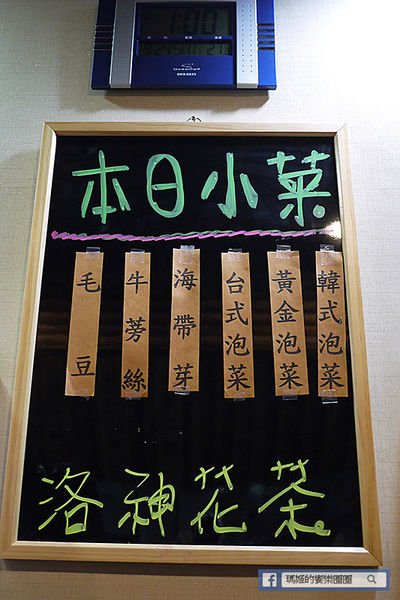 1:00
本日小菜
韓式泡菜
黃金泡菜
台式泡菜
海帶芽
牛蒡絲
毛豆
洛神花茶
瑪姬的饗樂園圈